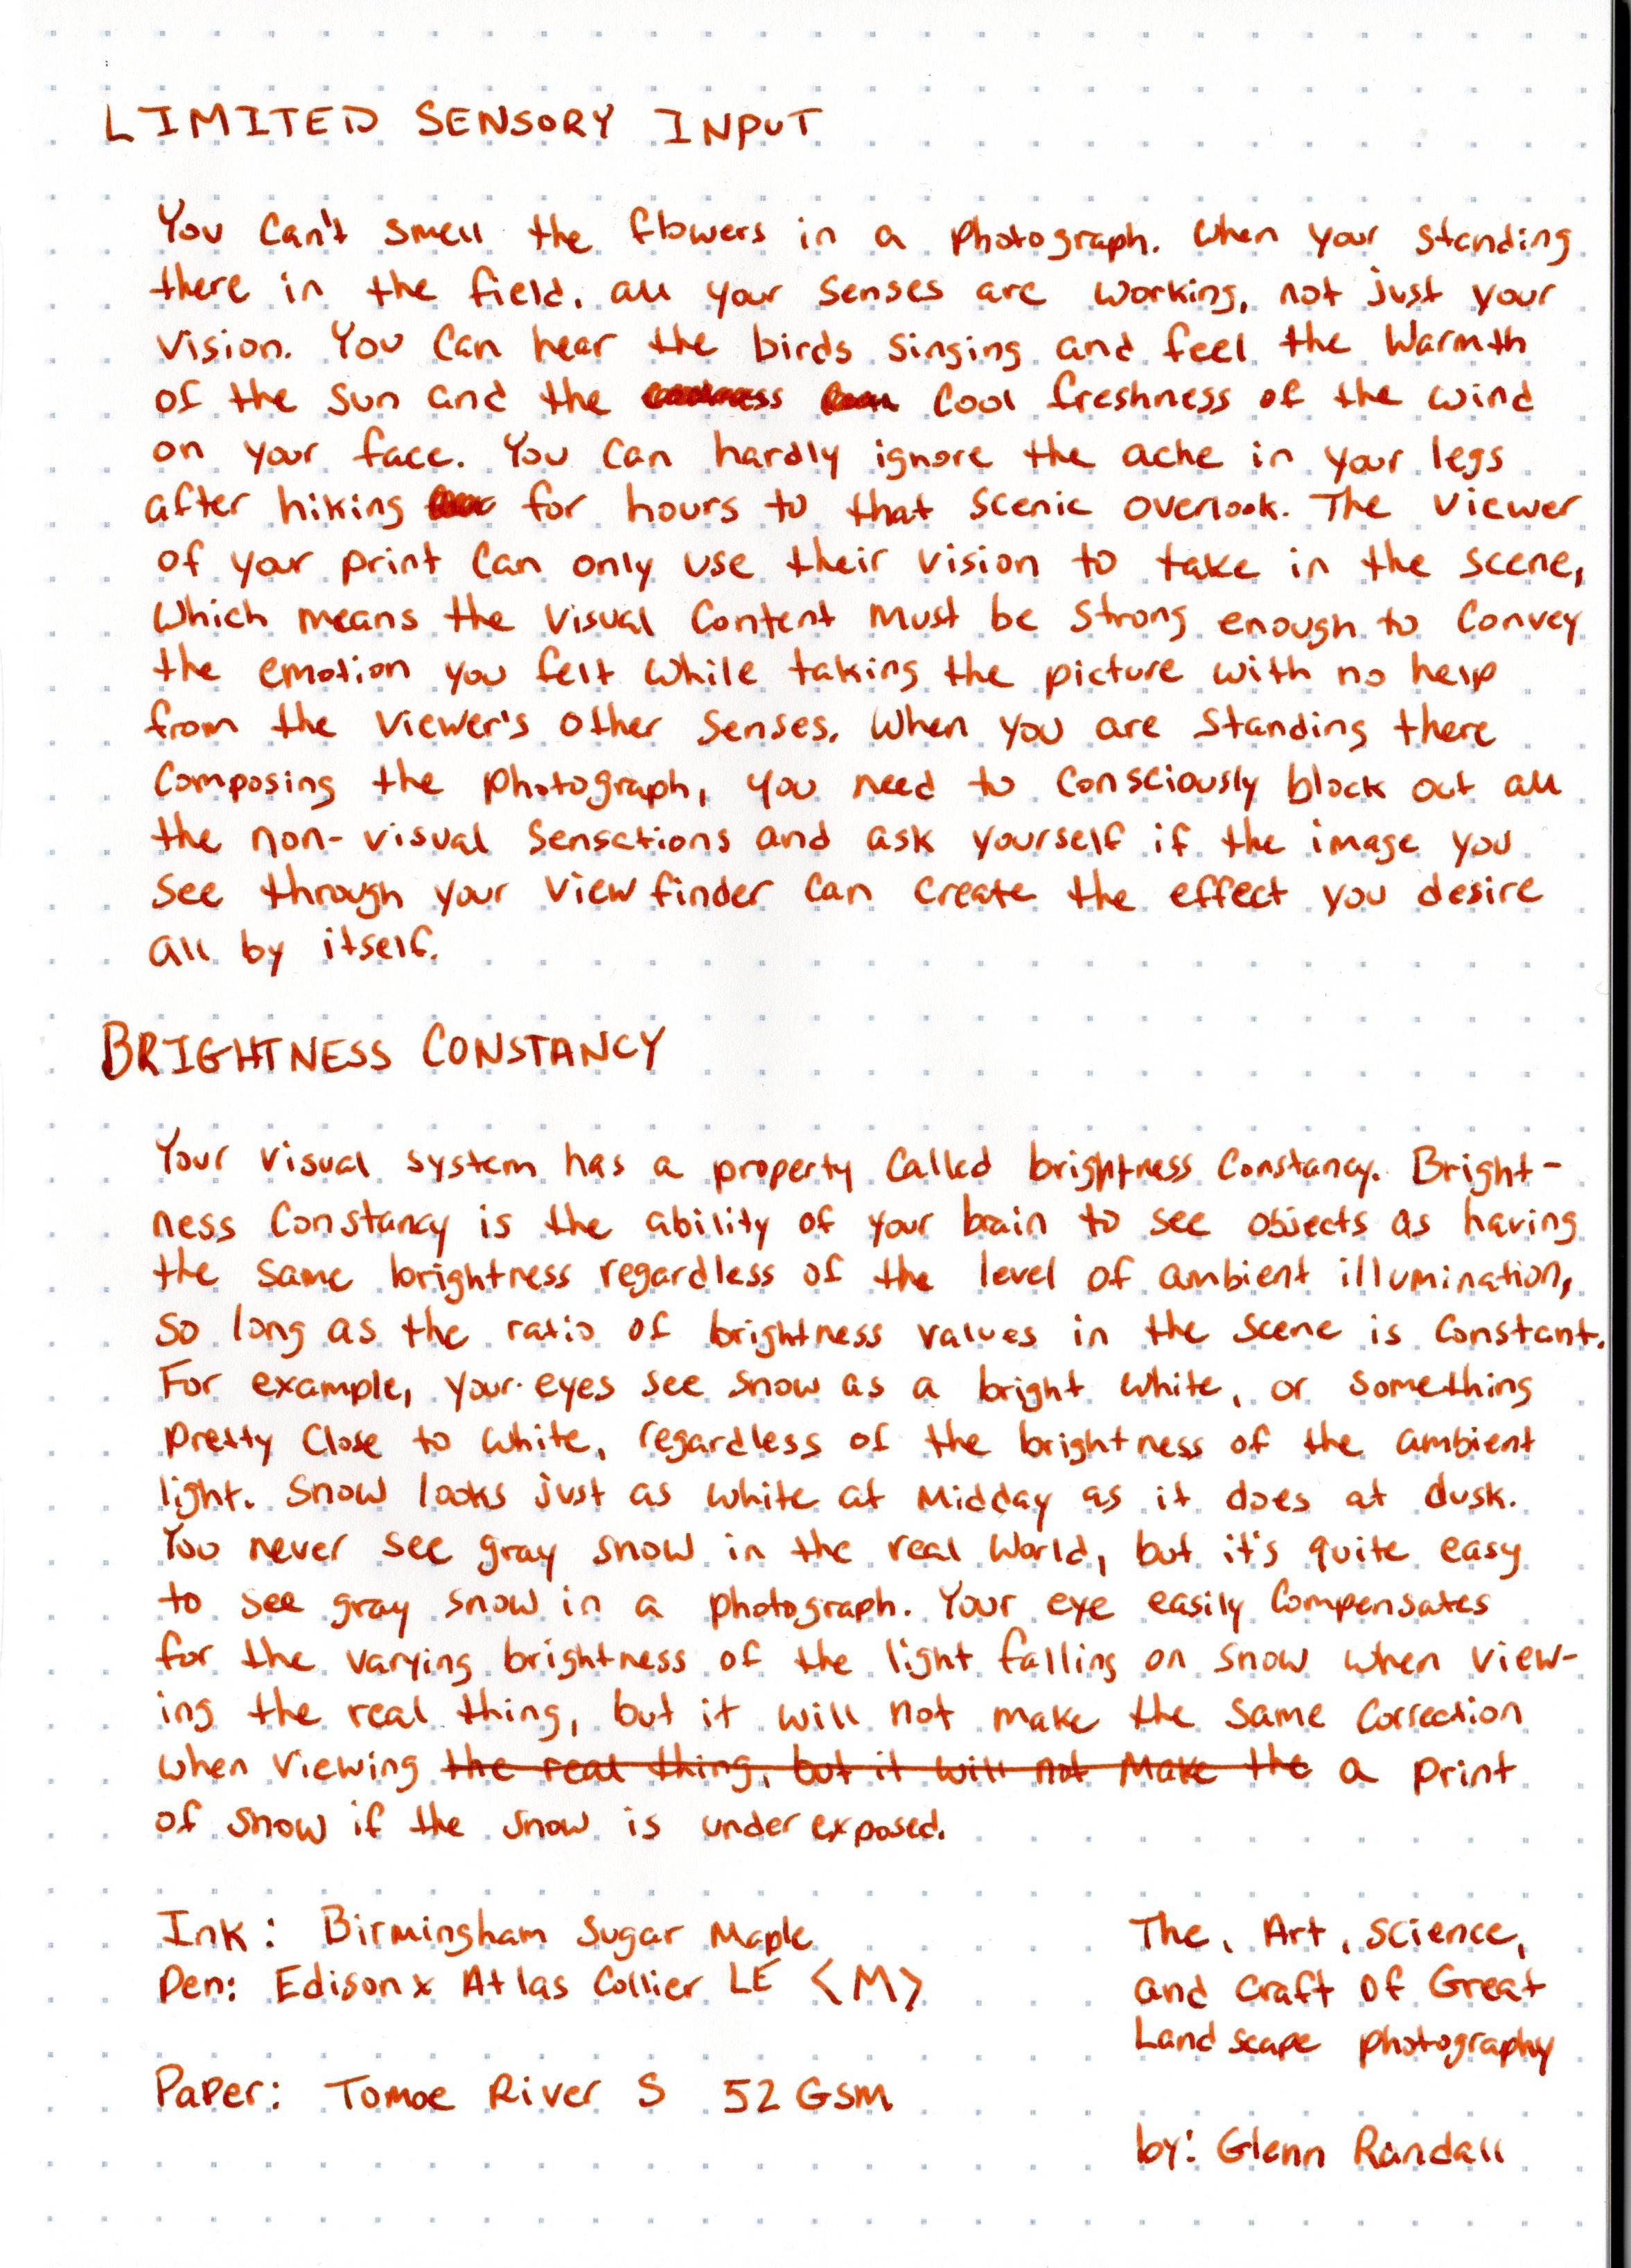 LIMITED SENSORY INPUT
You can't smell the flowers in a photograph. When your standing
there in the field. all your senses are working, not just your
vision. You can hear the birds singing and feel the warmth
of the sun and the cool freshness of the wind
on your face. You can hardly ignore the ache in your legs
after hiking for hours to that scenic overlook. The viewer
of your print can only use their vision to take in the scene,
which means the visual content must be strong enough to convey
the emotion you felt while taking the picture with no help
from the viewer's other senses. When you are standing there
composing the photograph, you need to consciously block out all
the non-visual sensations and ask yourself if the image you
see through your viewfinder can create the effect you desire
all by itself.
BRIGHTNESS CONSTANCY
Your visual system has a property called brightness constancy. Bright-
ness constancy is the ability of your brain to see objects as having
the same brightness regardless of the level of ambient illumination,
so long as the ratio of brightness values in the scene is constant.
For example, your eyes see snow as a bright white, or something
pretty close to white, regardless of the brightness of the ambient
light. Snow looks just as white at midday as it does at dusk.
You never see gray snow in the real world, but it's quite easy
to see gray snow in a photograph. Your eye easily compensates
for the varying brightness of the light falling on snow when view-
ing the real thing, but it will not make the same correction
when viewing the real thing, but it will not make the a print
of snow if the snow is underexposed.
Ink: Birmingham Sugar Maple
Pen: Edison x Atlas Collier LE <M>
Paper: Tomoe River S 52 GSM
The, Art, Science,
and craft of Great
Landscape photography
by: Glenn Randall